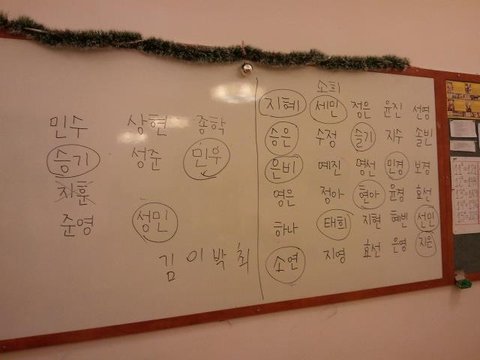 민수 상현 종학
승기 성준 민우
지훈
준영 성민
김 이 박 최
소희
지혜 세민 정은 윤진 선영
승은 수정 슬기 지수 솔빈
은비 예진 영선 민경 보경
영은 정아 현아 윤경 효선
하나 태희 지현 혜빈 선민
소연 지영 효선 은영 지은